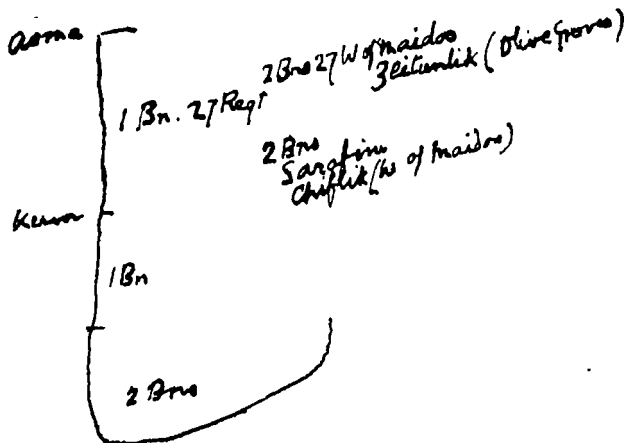 Asma
1 Bn. 27 Regt
2 Bns 27 W of Maidos
Zeitunlik (Olive Groves)
2 Bns
Sarafim
Chiflik (W of Maidos)
1 Bn
2 Bns